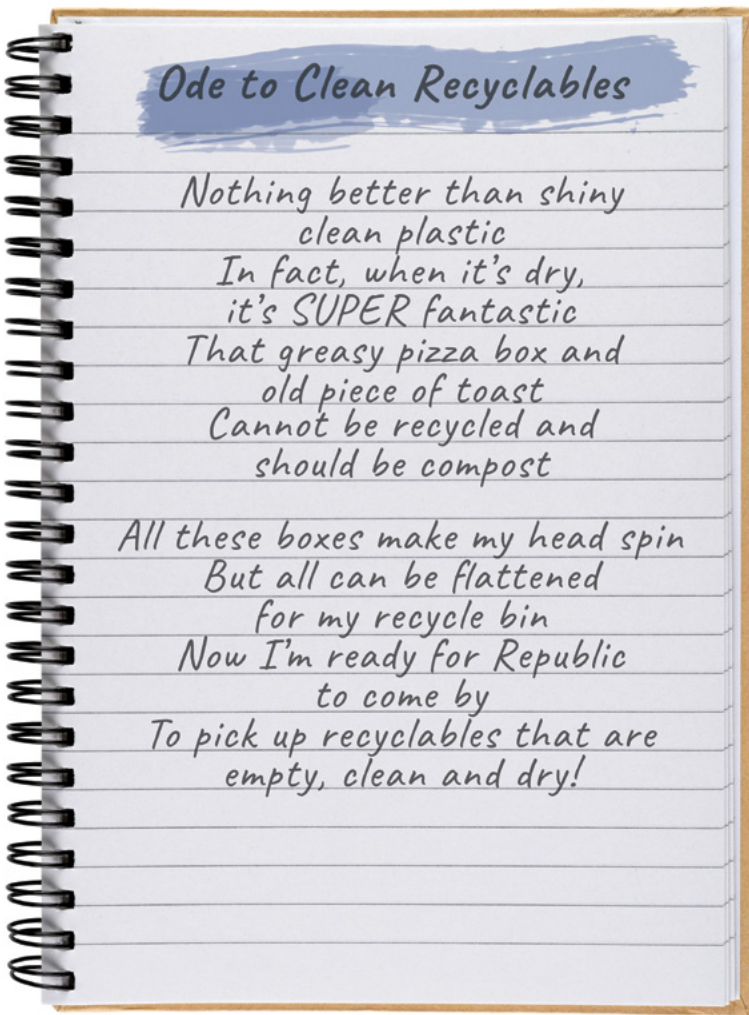 Ode to Clean Recyclables
Nothing better than shiny
clean plastic
In fact, when it's dry,
it's SUPER fantastic
That greasy pizza box and
old piece of toast
Cannot be recycled and
should be compost
All these boxes make my head spin
But all can be flattened
for my recycle bin
Now I'm ready for Republic
to come by
To pick up recyclables that are
empty, clean and dry!